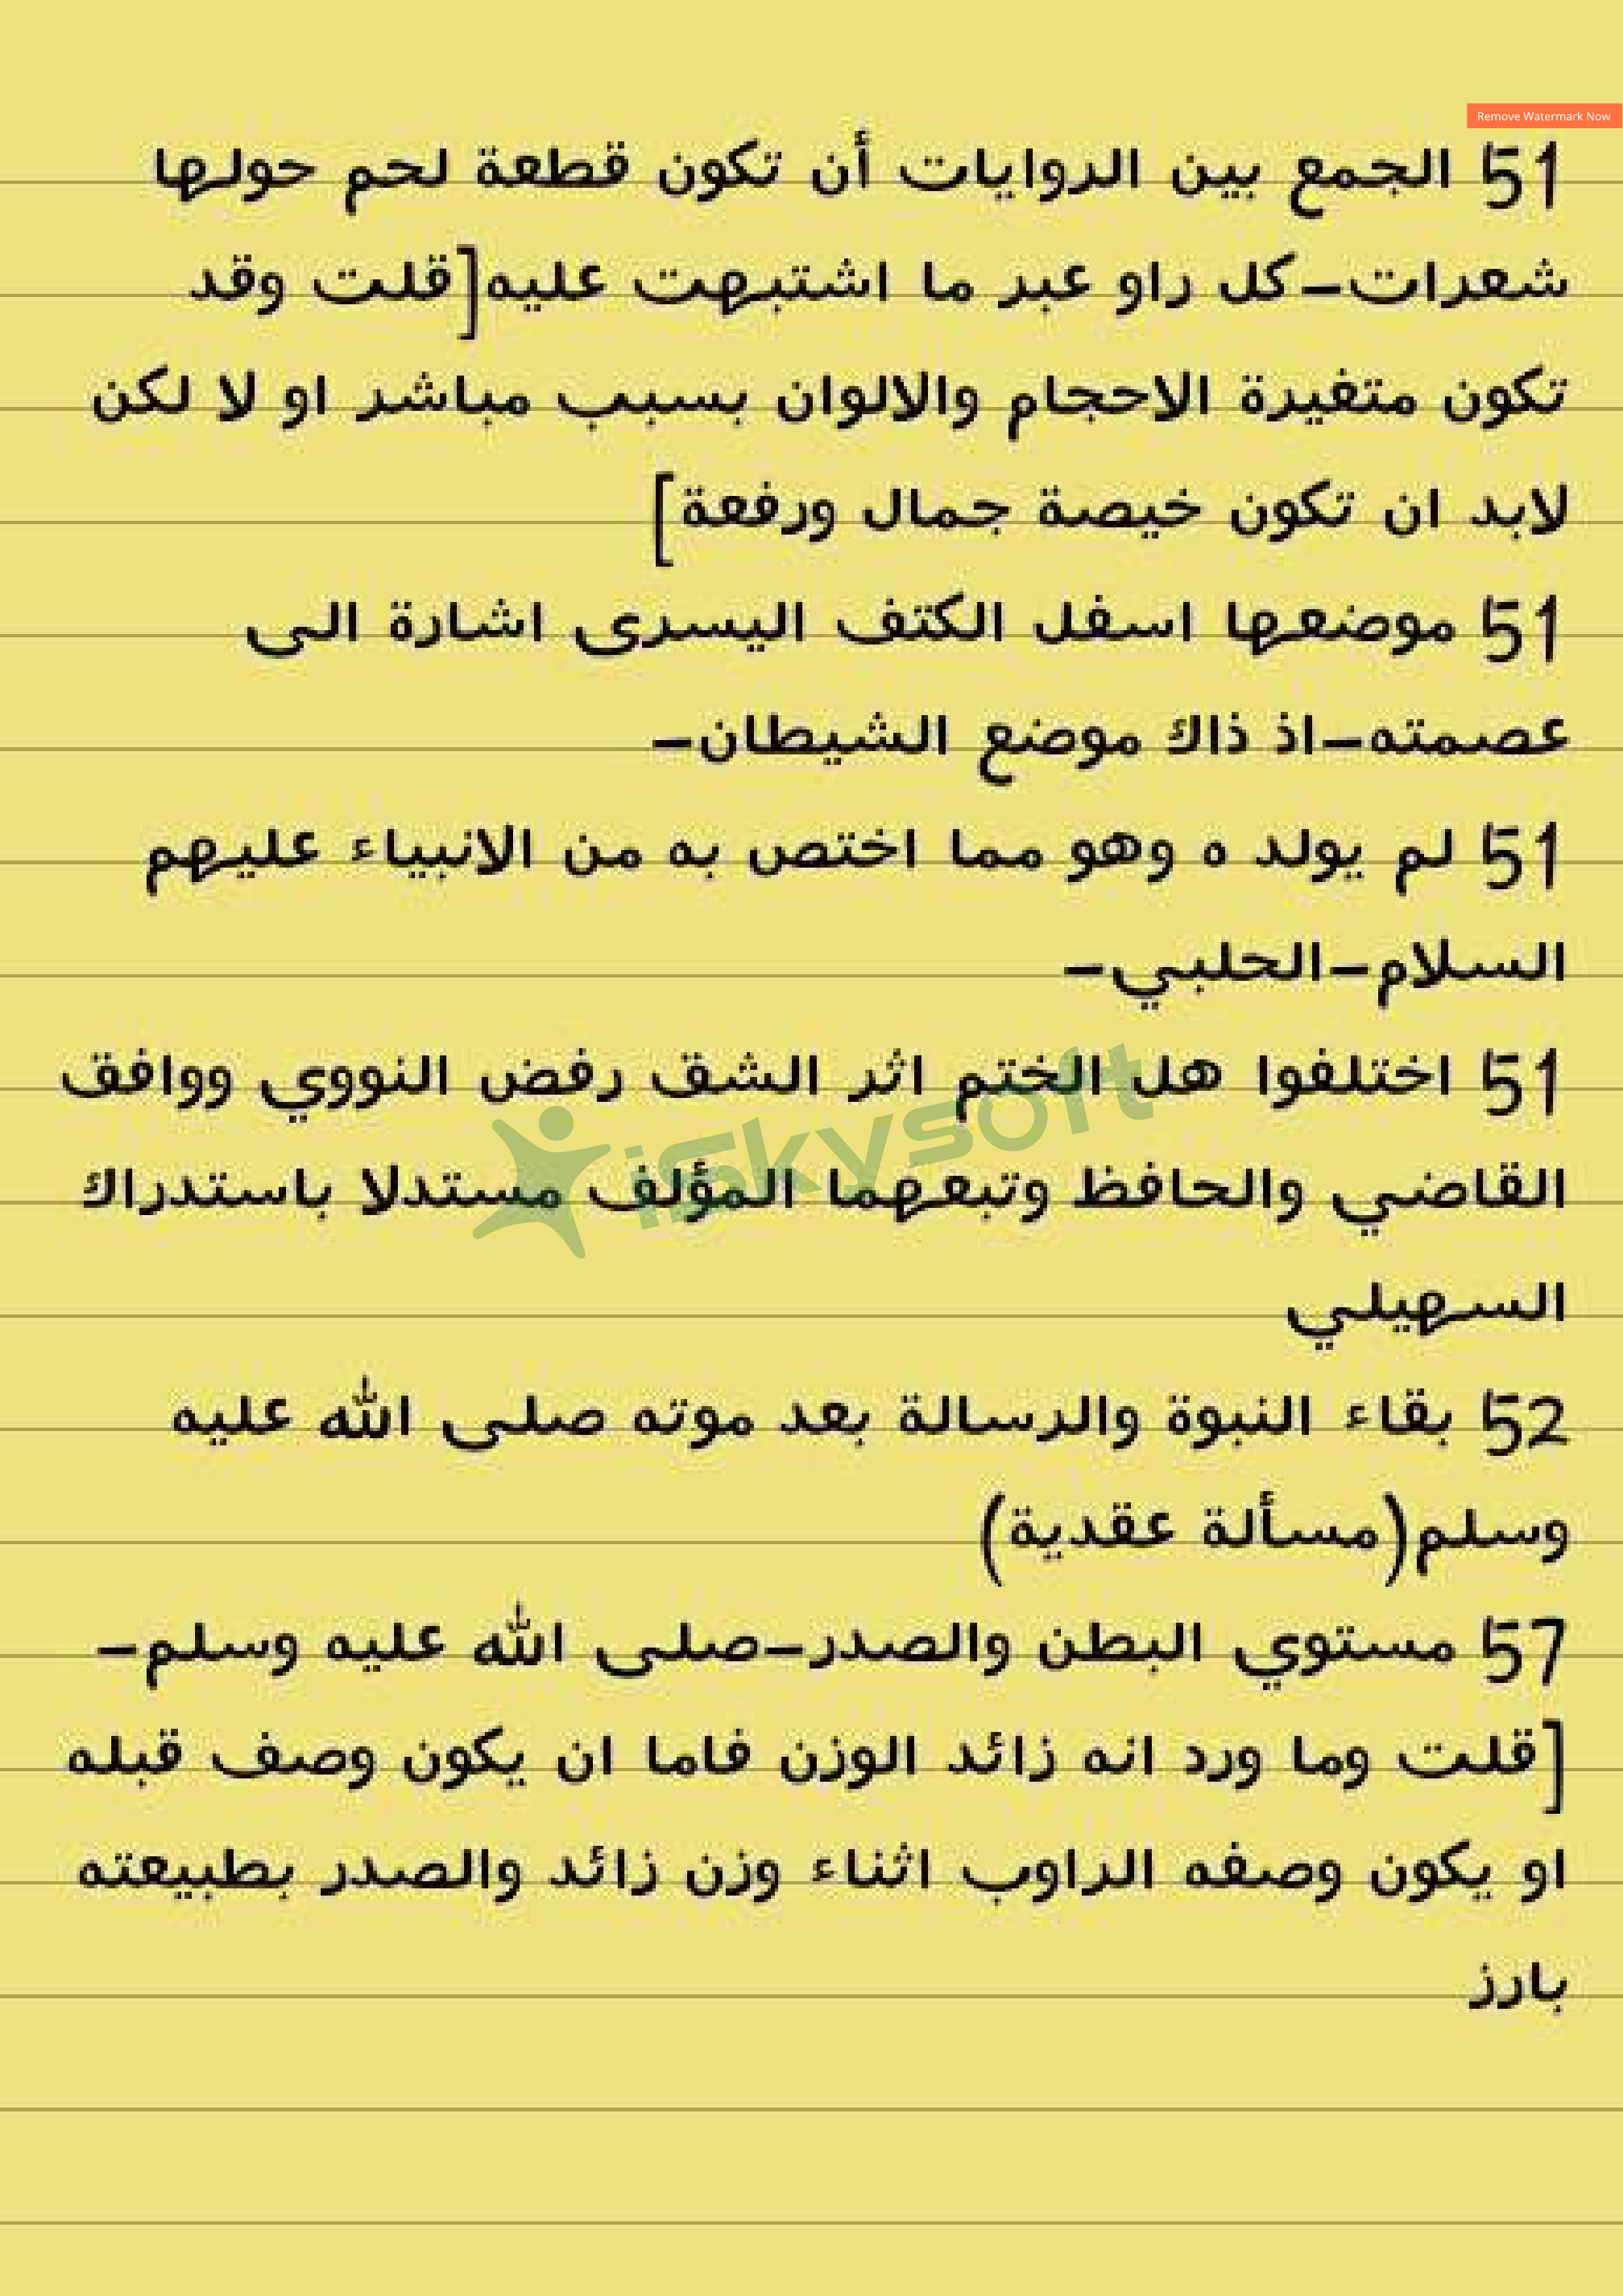 Remove Watermark Now
51 الجمع بين الروايات أن تكون قطعة لحم حولها
شعرات-كل راو عبر ما اشتبهت عليه[قلت وقد
تكون متغيرة الاحجام والالوان بسبب مباشر او لا لكن
لابد ان تكون خيصة جمال ورفعة]
51 موضعها اسفل الكتف اليسرى اشارة الى
عصمته-اذ ذاك موضع الشيطان-
51 لم يولد ه وهو مما اختص به من الانبياء عليهم
السلام-الحلبي-
51 اختلفوا هل الختم اثر الشق رفض النووي ووافق
القاضي والحافظ وتبعهما المؤلف مستدلا باستدراك
السهيلي
iskysoft
52 بقاء النبوة والرسالة بعد موته صلى الله عليه
وسلم(مسألة عقدية)
57 مستوي البطن والصدر-صلى الله عليه وسلم-
[قلت وما ورد انه زائد الوزن فاما ان يكون وصف قبله
او يكون وصفه الراوب اثناء وزن زائد والصدر بطبيعته
بارز